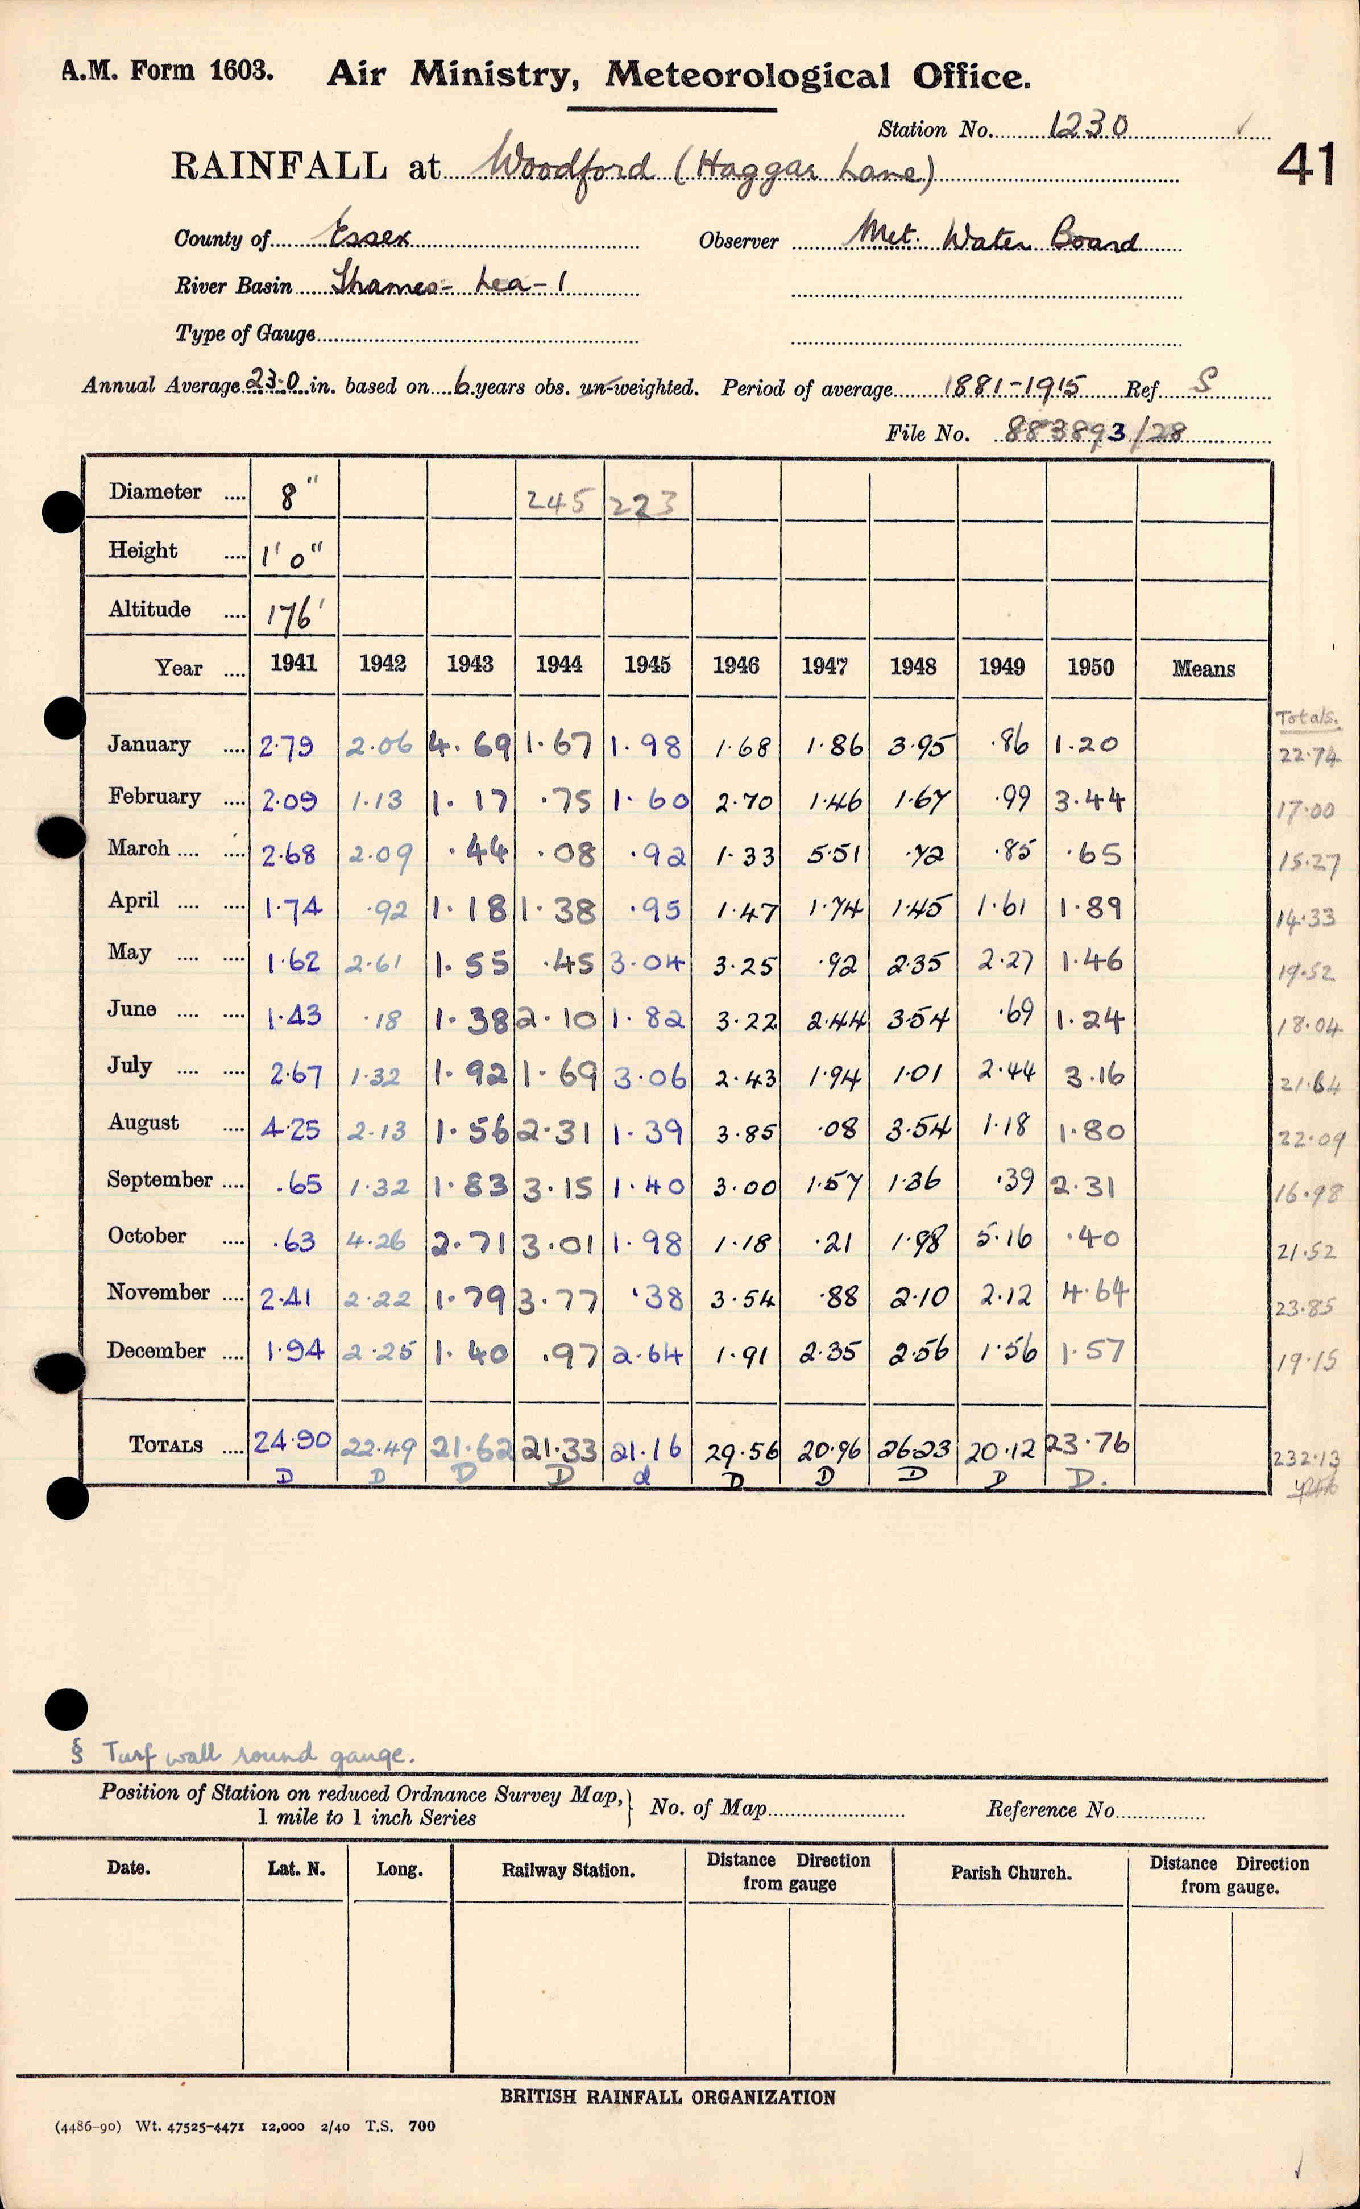 A.M. Form 1603. Air Ministry, Meteorological Office.
Station No. 1230
41
RAINFALL at Woodford (Haggar Lane)
County of Essex Observer Met. Water Board
River Basin Thames - Lea - 1
Type of Gauge
Annual Average 23.0 in. based on 6 years obs. un-weighted. Period of average 1881-1915 Ref S
File No. 883893/28
Diameter .... 8" 245 223
Height .... 1' 0"
Altitude .... 176'
Year .... 1941 1942 1943 1944 1945 1946 1947 1948 1949 1950 Means
Totals.
January .... 2.79 2.06 4.69 1.67 1.98 1.68 1.86 3.95 .86 1.20 22.74
February .... 2.09 1.13 1.17 .75 1.60 2.70 1.46 1.67 .99 3.44 17.00
March .... .... 2.68 2.09 .44 .08 .92 1.33 5.51 .72 .85 .65 15.27
April .... .... 1.74 .92 1.18 1.38 .95 1.47 1.74 1.45 1.61 1.89 14.33
May .... .... 1.62 2.61 1.55 .45 3.04 3.25 .92 2.35 2.27 1.46 19.52
June .... .... 1.43 .18 1.38 2.10 1.82 3.22 2.44 3.54 .69 1.24 18.04
July .... .... 2.67 1.32 1.92 1.69 3.06 2.43 1.94 1.01 2.44 3.16 21.64
August .... 4.25 2.13 1.56 2.31 1.39 3.85 .08 3.54 1.18 1.80 22.09
September .... .65 1.32 1.83 3.15 1.40 3.00 1.57 1.36 .39 2.31 16.98
October .... .63 4.26 2.71 3.01 1.98 1.18 .21 1.98 5.16 .40 21.52
November .... 2.41 2.22 1.79 3.77 .38 3.54 .88 2.10 2.12 4.64 23.85
December .... 1.94 2.25 1.40 .97 2.64 1.91 2.35 2.56 1.56 1.57 19.15
TOTALS .... 24.90 22.49 21.62 21.33 21.16 29.56 20.96 26.23 20.12 23.76 232.13
D D D D d D D D D D.
§ Turf wall round gauge.
Position of Station on reduced Ordnance Survey Map, 1 mile to 1 inch Series } No. of Map Reference No.
Date. Lat. N. Long. Railway Station. Distance Direction from gauge Parish Church. Distance Direction from gauge.
BRITISH RAINFALL ORGANIZATION
(4486-90) Wt. 47525-4471 12,000 2/40 T.S. 700